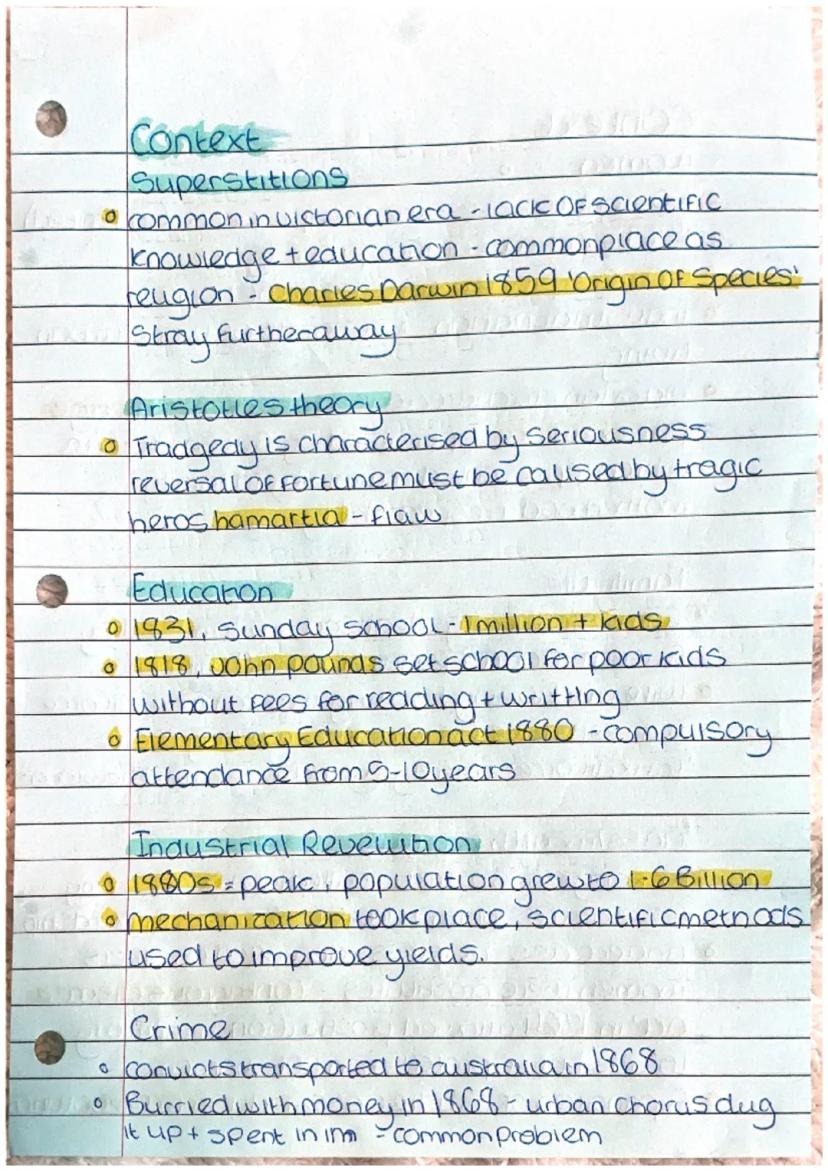 Context
Superstitions
common in victorian era - lack of scientific
knowledge + education - commonplace as
religion - Charles Darwin 1859 'Origin of Species'
Stray further away
Aristotles theory
Tradgedy is characterised by seriousness
reversal of fortune must be caused by tragic
heros hamartia - flaw
Education
1831, sunday school - 1 million + kids
1818, John pounds set school for poor kids
without fees for reading + writting
Elementary Education act 1880 - compulsory
attendance from 5-10 years
Industrial Revelution
1880s = peak, population grew to 1.6 Billion
mechanization took place, scientific methods
used to improve yields.
Crime
convicts transported to australia in 1868
Burried with money in 1868 - urban chorus dug
it up + spent in inn - common problem